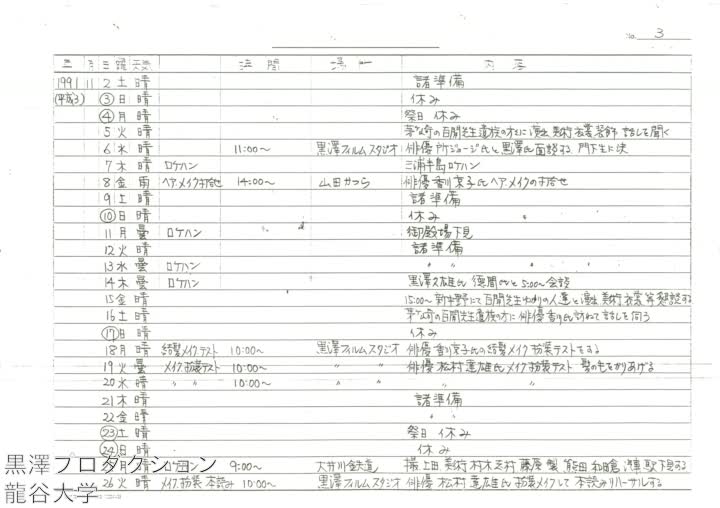 No. 3
年 月 日 曜 天気 時間 場所 内容
1991 11 2 土 晴 諸準備
(平成3) ③ 日 晴 休み
④ 月 晴 祭日 休み
5 火 晴 茅ヶ崎の百閒先生遺族の方に演出 美術 衣裳 装飾 話しを聞く
6 水 晴 11:00〜 黒澤フィルムスタジオ 俳優 所ジョージ氏と黒澤氏面談する 門下生に決
7 木 晴 ロケハン 三浦半島ロケハン
8 金 雨 ヘアメイク打合せ 14:00〜 山田かつら 俳優 香川京子氏ヘアメイクの打合せ
9 土 晴 諸準備
⑩ 日 晴 休み
11 月 曇 ロケハン 御殿場下見
12 火 晴 諸準備
13 水 曇 ロケハン 〃 〃 〃
14 木 曇 ロケハン 黒澤久雄氏 徳間氏と5:00〜会談
15 金 晴 15:00〜 新半野にて百閒先生ゆかりの人達と演出 美術 衣裳 等懇談する
16 土 晴 茅ヶ崎の百閒先生遺族の方に俳優香川氏訪ねて話しを伺う
⑰ 日 晴 休み
18 月 晴 結髪メイクテスト 10:00〜 黒澤フィルムスタジオ 俳優 香川京子氏の結髪メイク扮装テストをする
19 火 曇 メイク扮装テスト 10:00〜 〃 〃 俳優 松村達雄氏メイク扮装テスト 髪の毛をかりあげる
20 水 晴 〃 〃 10:00〜 〃 〃
21 木 晴 諸準備
22 金 晴 〃 〃
㉓ 土 晴 祭日 休み
㉔ 日 晴 休み
月 晴 ロケハン 9:00〜 大井川鉄道 撮 上田 美術 村木 芝村 藤原 製 熊田 和田倉 汽車 駅下見する
26 火 晴 メイク扮装 本読み 10:00〜 黒澤フィルムスタジオ 俳優 松村達雄氏扮装メイクして本読みリハーサルする
黒澤プロダクション
龍谷大学